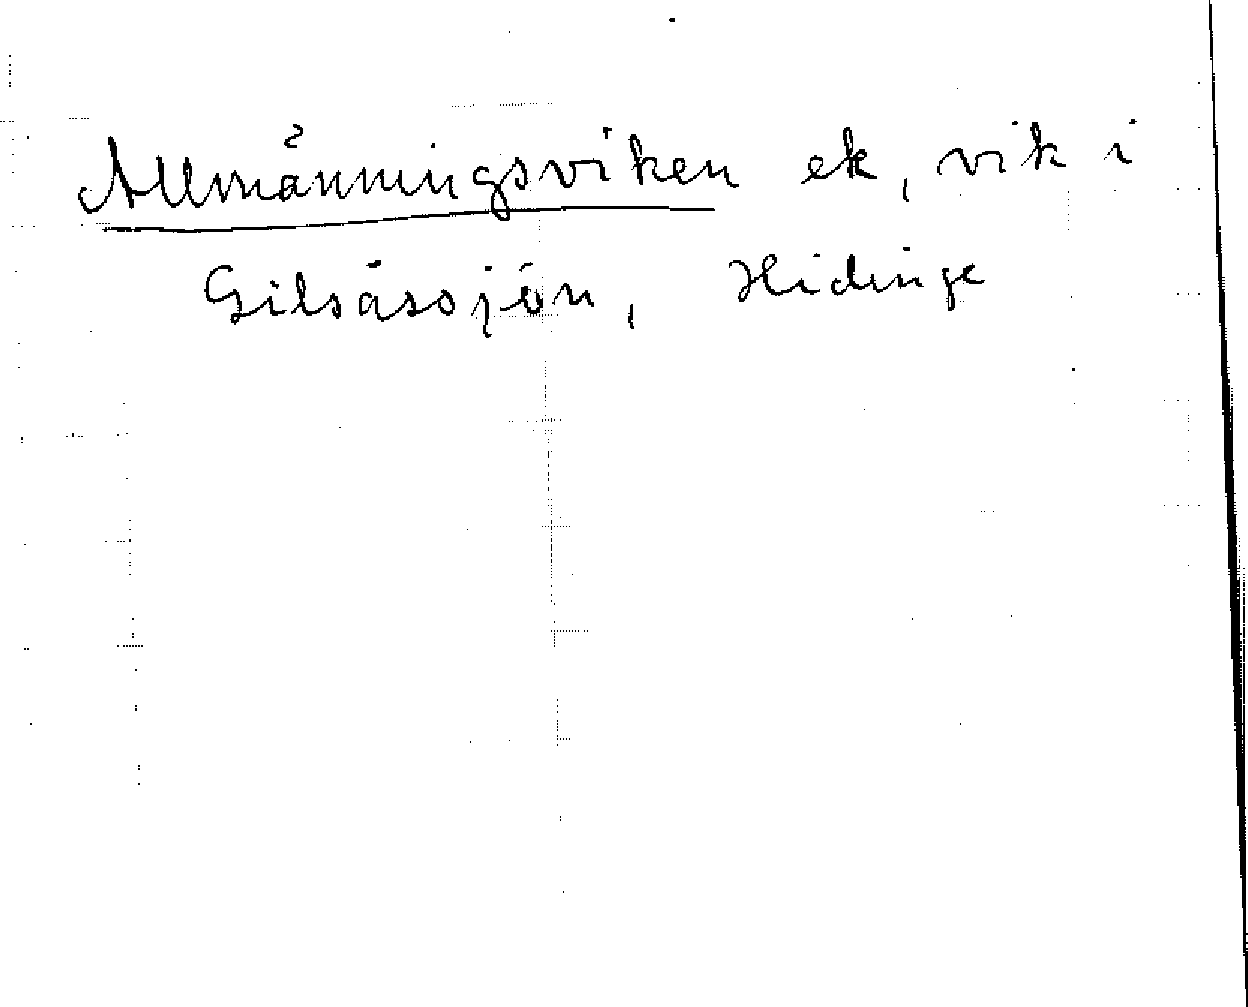 Allmänningsviken ek, vik i
Gilsåssjön, Hidinge